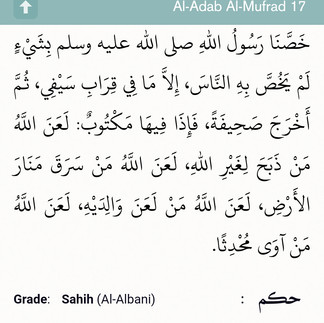 Al-Adab Al-Mufrad 17
خَصَّنَا رَسُولُ اللهِ صلى الله عليه وسلم بِشَيْءٍ
لَمْ يَخُصَّ بِهِ النَّاسَ، إِلاَّ مَا فِي قِرَابِ سَيْفِي، ثُمَّ
أَخْرَجَ صَحِيفَةً، فَإِذَا فِيهَا مَكْتُوبٌ: لَعَنَ اللَّهُ
مَنْ ذَبَحَ لِغَيْرِ اللهِ، لَعَنَ اللَّهُ مَنْ سَرَقَ مَنَارَ
الأَرْضِ، لَعَنَ اللَّهُ مَنْ لَعَنَ وَالِدَيْهِ، لَعَنَ اللَّهُ
مَنْ آوَى مُحْدِثًا.
Grade: Sahih (Al-Albani) : حكم